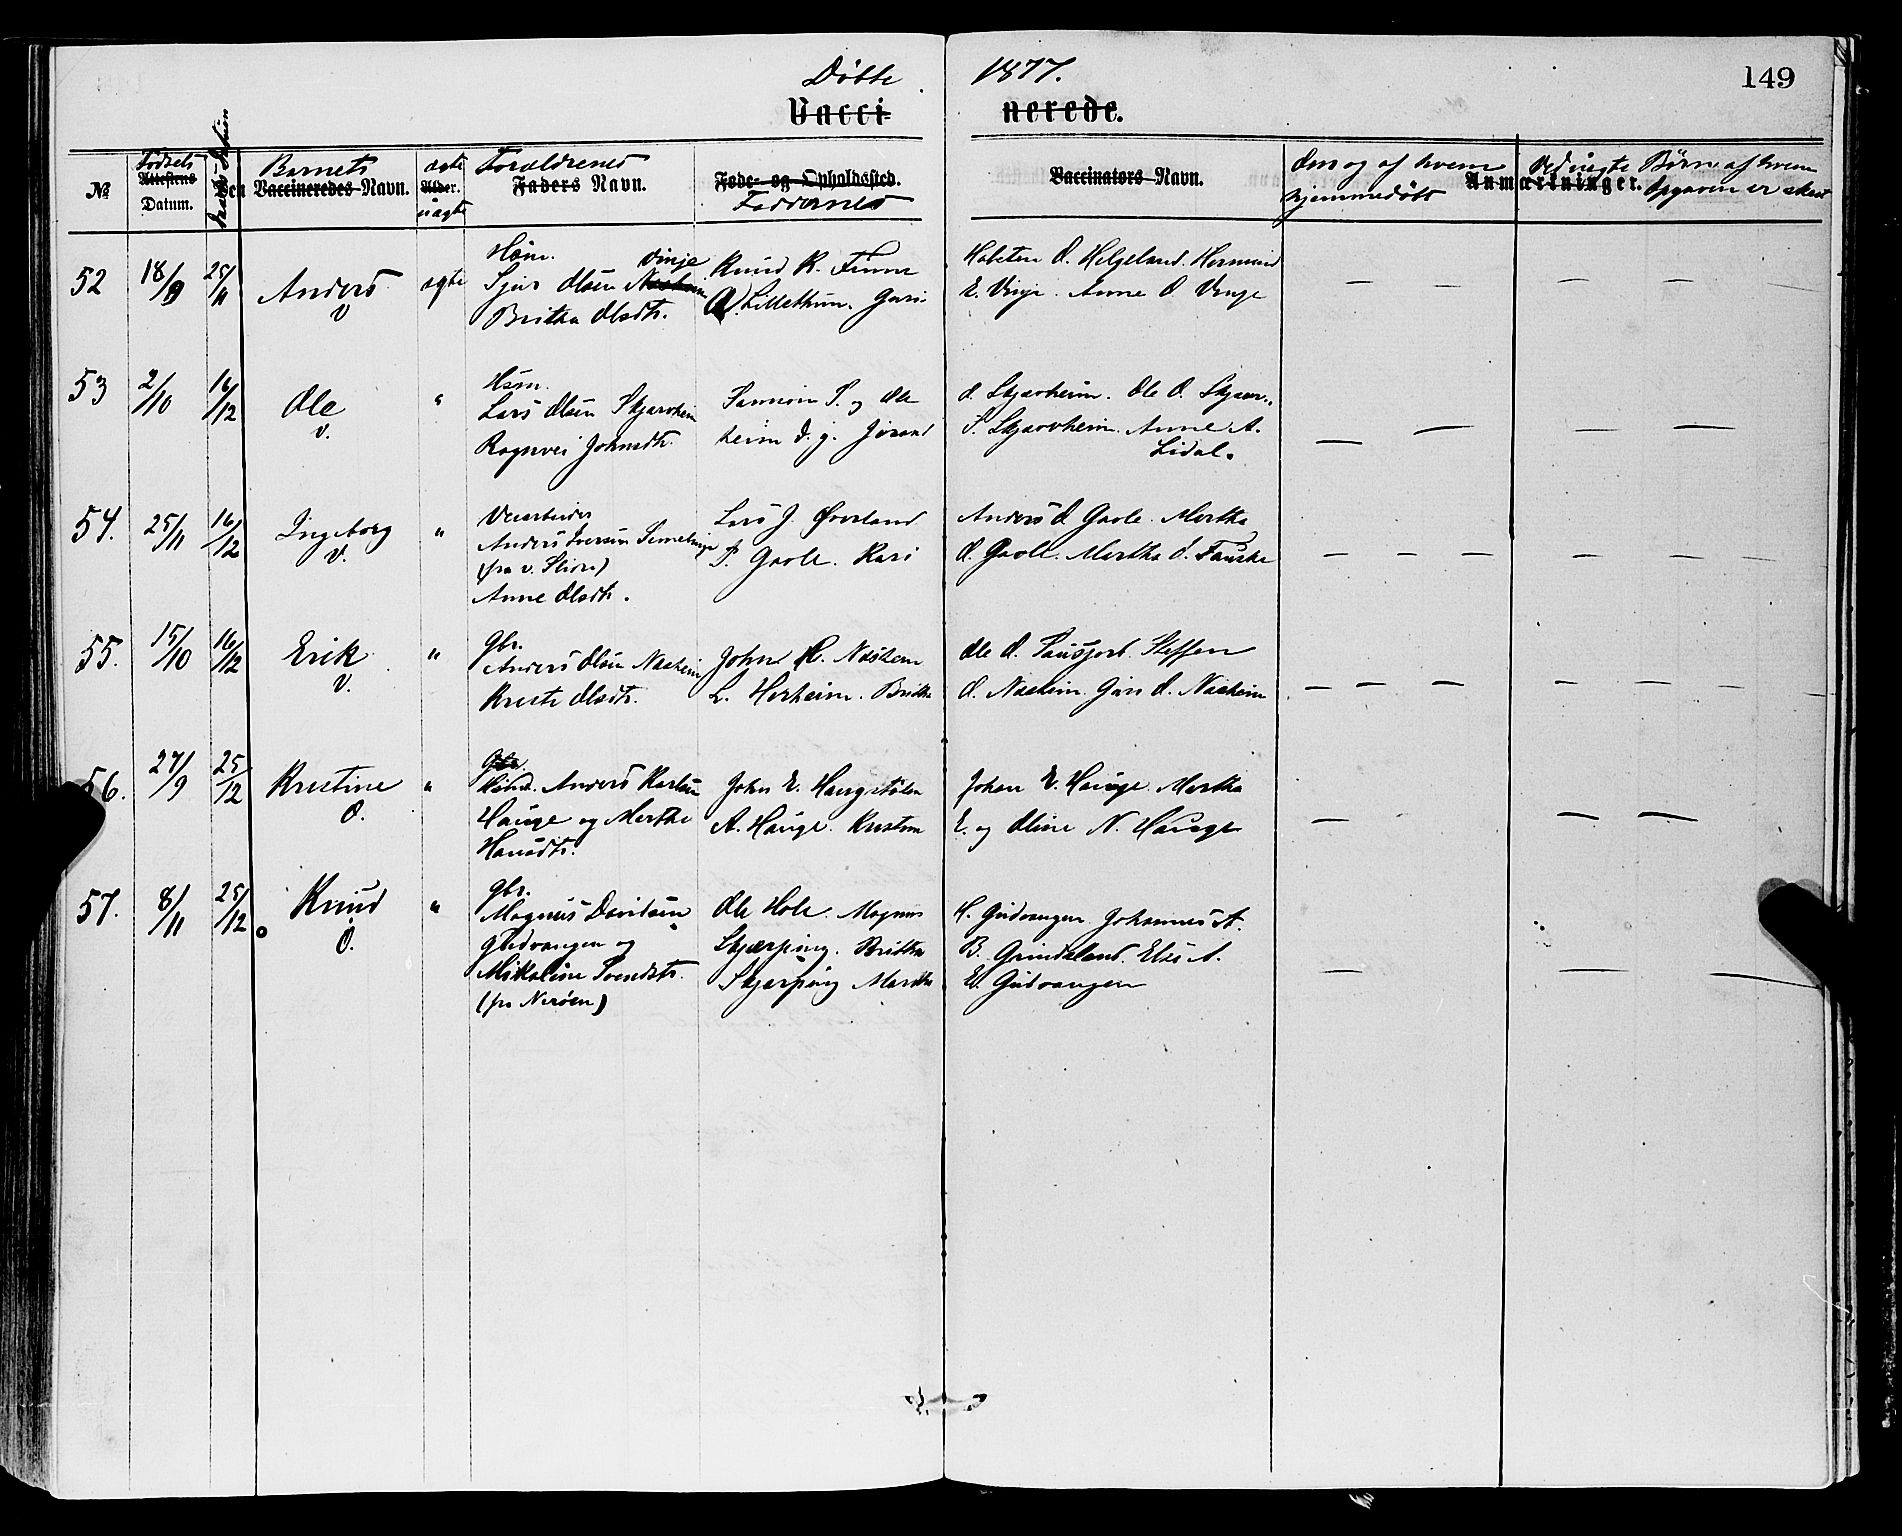 Døbte 1877.
149
Vaccinerede.
№
Fødsels Attestens Datum.
Den
Barnets Vaccineredes Navn.
ægte Alder. uægte
Forældrenes Faders Navn.
Føde- og Opholdssted.
Faddernes
Vaccinators Navn.
Om og af hvem
hjemmedøbt
Anmærkninger.
Ved uægte Børn af hvem
Opgaven er skeet
52 18/9 25/11 Anders V ægte
Húsm. Vinje
Sjur Olsen
Britha Olsdtr.
Knud K. Finne
Lillethun. Guri
O. Helgeland. Hermund
E. Vinje. Anne O. Vinje
— — — — — —
53 2/10 16/12 Ole V. "
Húsm.
Lars Olsen Skjærvheim
Ragnvei Johnsdtr.
Samson S. og Ole
heim d. y. Jorand
O. Skjærvheim. Ole O. Skjær-
S. Skjærvheim. Anne A.
Lidal.
— — — —
54. 25/11 16/12 Ingeborg V. "
Veiarbeider
Anders Iversen
(fra v. Slidre)
Anne Olsdtr.
Lars J. Øverland
S. Gavle. Kari
Anders O. Gavle. Martha
O. Gavle. Martha O. Fauske
— — — — —
55. 15/10 16/12 Erik V. "
Gbr.
Anders Olsen Næsheim
Kristi Olsdtr.
John H. Næsheim
L. Herheim. Britha
Ole O. Saúe Steffen
O. Næsheim. Guri O. Næsheim
— — — — — — —
56. 27/9 25/12 Kristine O. "
Gbr.
Húsm. Anders Karlsen
Hauge og Marthe
Hansdtr.
John E. Haugstølen
A. Hauge. Kristen
Johan E. Hauge. Martha
E. og Oline N. Hauge
— — —
57. 8/11 25/12 Knud O. "
Gbr.
Magnus Davidsen
Gudvangen og
Mikaline Svendsdtr.
(fra Nerøen)
Ole Hole. Magnus
Skjærping. Britha
Skjerping Martha
H. Gudvangen Johannes A.
B. Grindeland. Else A.
E. Gudvangen
— — —